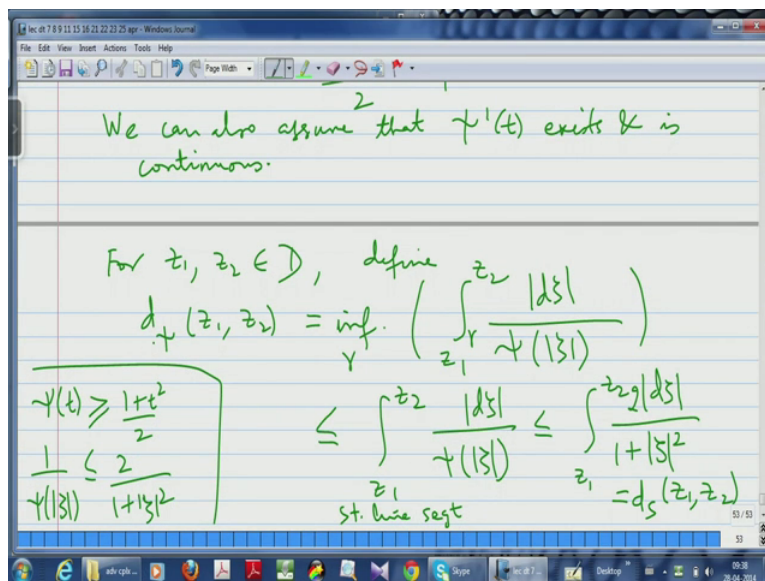 lec dt 7 8 9 11 15 16 21 22 23 25 apr - Windows Journal
File Edit View Insert Actions Tools Help
Page Width
2
We can also assume that ψ'(t) exists & is
continuous.
For z₁, z₂ ∈ D, define
d_ψ(z₁, z₂) = inf_γ ( ∫_{z₁, γ}^{z₂} |dξ| / ψ(|ξ|) )
≤ ∫_{z₁}^{z₂} |dξ| / ψ(|ξ|) ≤ ∫_{z₁}^{z₂} 2|dξ| / 1+|ξ|²
st. line segt
= d_s(z₁, z₂)
ψ(t) ≥ 1+t² / 2
1 / ψ(|ξ|) ≤ 2 / 1+|ξ|²
53 / 53
53
adv cplx ...
Skype
lec dt 7 ...
Desktop
09:38
28-04-2014